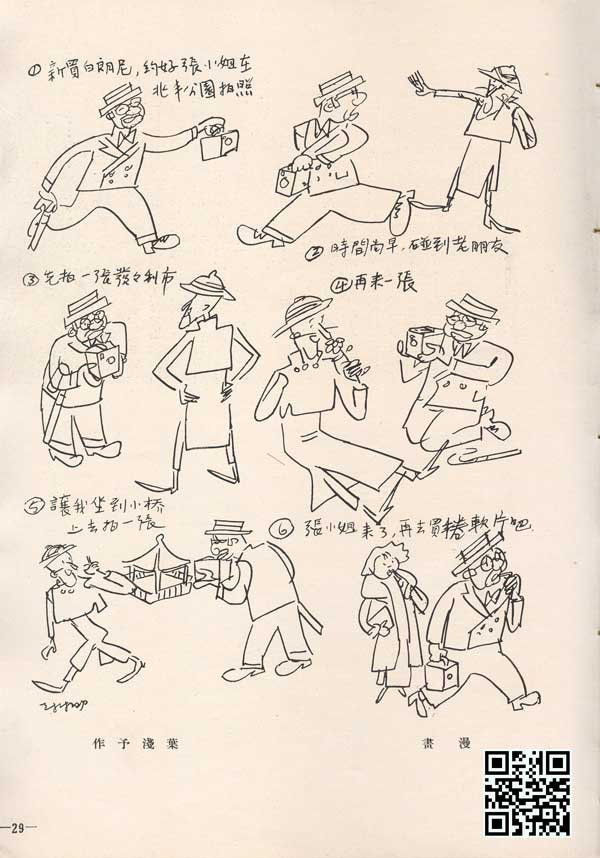 ①新買白朗尼，約好張小姐在
北半公園拍照
②時間尚早，碰到老朋友
③先拍一張發發利市
④再来一張
⑤讓我坐到小桥
上去拍一張
⑥張小姐来了，再去買捲軟片吧.
作予淺葉
畫漫
—29—